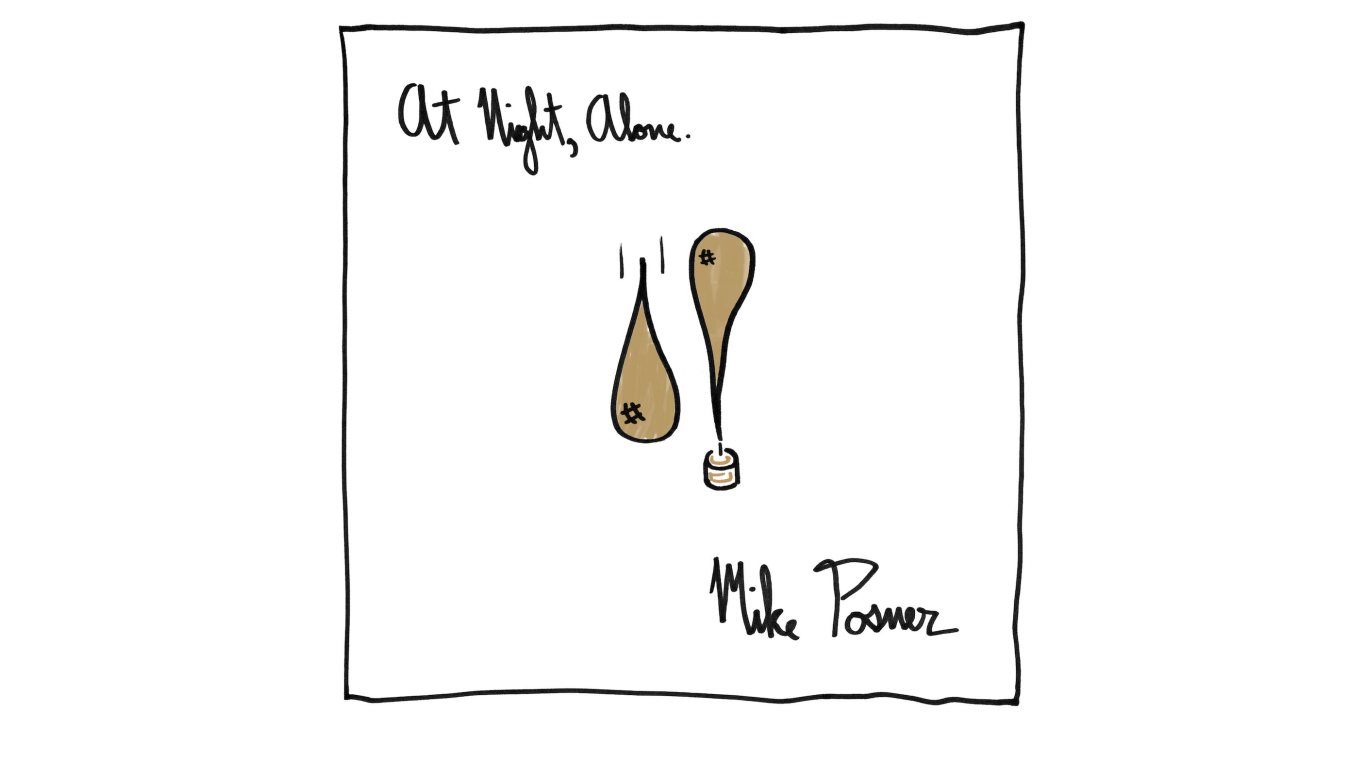 At Night, Alone.
#
#
Mike Posner